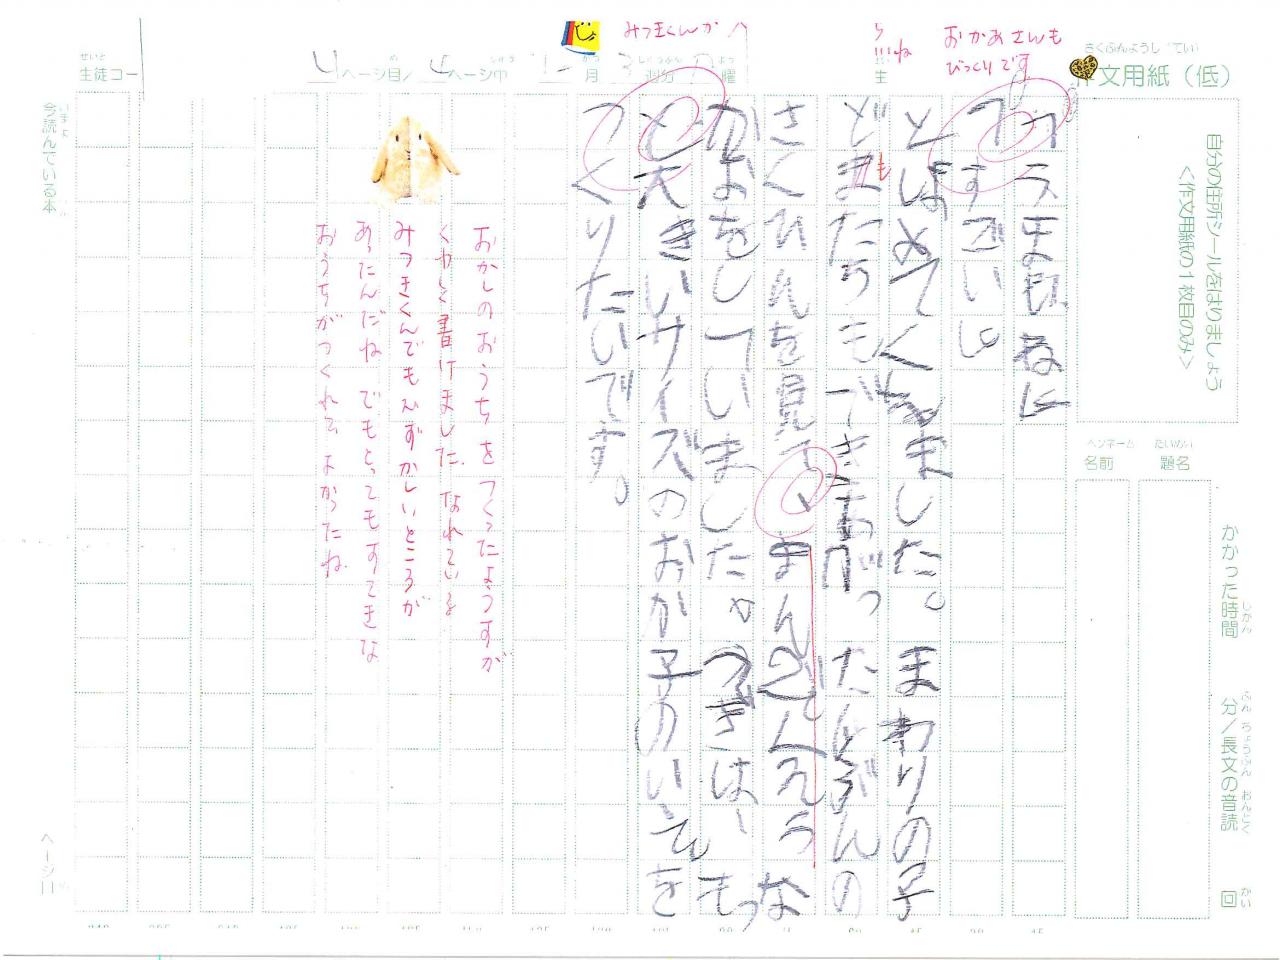 さくぶんようし（てい）
作文用紙（低）
おかあさんも
びっくりです
自分の住所シールをはりましょう
<作文用紙の1枚目のみ>
ペンネーム
名前
だいめい
題名
かかった時間
じかん
分／長文の音読
ふん ちょうぶん おんどく
回
かい
せいと
生徒コー
ページ目／
ページ中
月
週分
曜
生
みつきくんが
いいね
すごいし
とほめてくれました。まわりの子
どもたちもできあがったじぶんの
さくひんを見て、まんぞくそうな
かおをしていました。つぎは、もっ
と大きいサイズのおか子のいえを
つくりたいです。
おかしのおうちをつくったようすが
くわしく書けました。なれている
みつきくんでもむずかしいところが
あったんだね。でもとってもすてきな
おうちがつくれてよかったね。
今読んでいる本
ページ